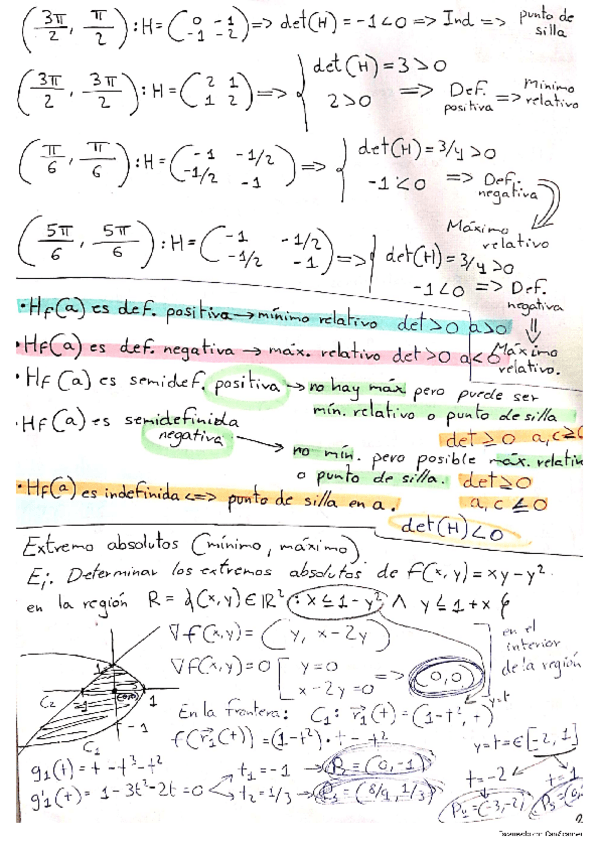 (3π/2, π/2): H = (0 -1; -1 -2) => det(H) = -1 < 0 => Ind => punto de silla
(3π/2, 3π/2): H = (2 1; 1 2) => { det(H) = 3 > 0
2 > 0 => Def. positiva => Mínimo relativo
(π/6, π/6): H = (-1 -1/2; -1/2 -1) => { det(H) = 3/4 > 0
-1 < 0 => Def. negativa
Máximo relativo
(5π/6, 5π/6): H = (-1 -1/2; -1/2 -1) => { det(H) = 3/4 > 0
-1 < 0 => Def. negativa
⇓
Máximo relativo.
• Hf(a) es def. positiva → mínimo relativo det > 0 a > 0
• Hf(a) es def. negativa → máx. relativo det > 0 a < 0
• Hf(a) es semidef. positiva → no hay máx pero puede ser
mín. relativo o punto de silla
det ≥ 0 a, c ≥ 0
• Hf(a) es semidefinida
negativa → no mín. pero posible máx. relativ
o punto de silla. det ≥ 0
a, c ≤ 0
• Hf(a) es indefinida <=> punto de silla en a.
det(H) < 0
Extremo absolutos (mínimo, máximo)
Ej: Determinar los extremos absolutos de f(x, y) = xy - y²
en la región R = {(x, y) ∈ ℝ² : x ≤ 1 - y² ∧ y ≤ 1 + x}
∇f(x, y) = (y, x - 2y)
∇f(x, y) = 0 [ y = 0
x - 2y = 0 => (0, 0)
en el
interior
de la región
1
C₂ -1 (0,0) 1
-1
C₁
y=t
En la frontera: C₁: r₁(t) = (1 - t², t)
f(r₁(t)) = (1 - t²) · t - t²
y = t = ∈ [-2, 1]
g₁(t) = t - t³ - t²
t₁ = -1 → P₂ = (0, -1)
t = -2 t = 1
g'₁(t) = 1 - 3t² - 2t = 0
t₂ = 1/3 → = (8/9, 1/3)
P₄ = (-3, -2)
Escaneado con CamScanner